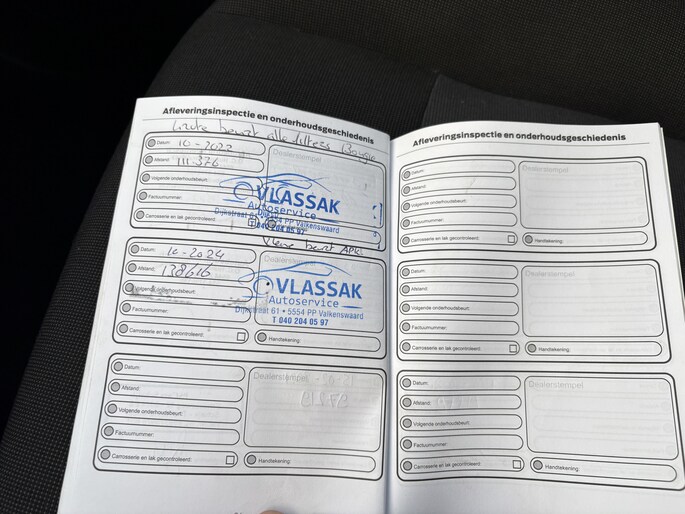 Afleveringsinspectie en onderhoudsgeschiedenis
Grote beurt alle filters Bougie
Datum: 10-2022
Afstand: 111-376
Volgende onderhoudsbeurt:
Factuurnummer:
Carrosserie en lak gecontroleerd:
Dealerstempel
VLASSAK
Autoservice
Dijkstraat 61 • 5554 PP Valkenswaard
T 040 204 05 97
Kleine beurt APK
Datum: 10-2024
Afstand: 138616
Volgende onderhoudsbeurt:
Factuurnummer:
Carrosserie en lak gecontroleerd:
Dealerstempel
VLASSAK
Autoservice
Dijkstraat 61 • 5554 PP Valkenswaard
T 040 204 05 97
Handtekening:
Datum:
Afstand:
Volgende onderhoudsbeurt:
Factuurnummer:
Carrosserie en lak gecontroleerd:
Dealerstempel
Handtekening:
Afleveringsinspectie en onderhoudsgeschiedenis
Datum:
Afstand:
Volgende onderhoudsbeurt:
Factuurnummer:
Carrosserie en lak gecontroleerd:
Dealerstempel
Handtekening:
Datum:
Afstand:
Volgende onderhoudsbeurt:
Factuurnummer:
Carrosserie en lak gecontroleerd:
Dealerstempel
Handtekening:
Datum:
Afstand:
Volgende onderhoudsbeurt:
Factuurnummer:
Carrosserie en lak gecontroleerd:
Dealerstempel
Handtekening: